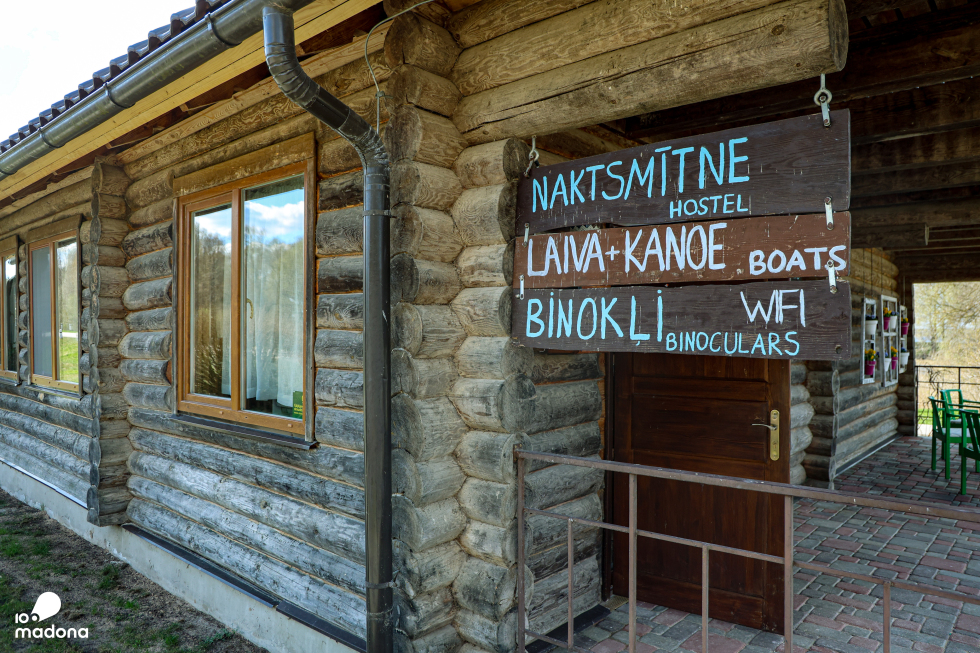 NAKTSMĪTNE
HOSTEL
LAIVA+KANOE BOATS
BINOKLI BINOCULARS WIFI
madona